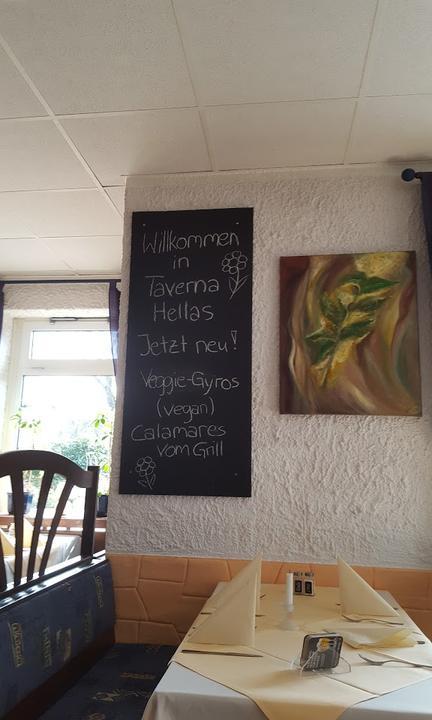 Willkommen
in
Taverna
Hellas
Jetzt neu!
Veggie-Gyros
(vegan)
Calamares
vom Grill